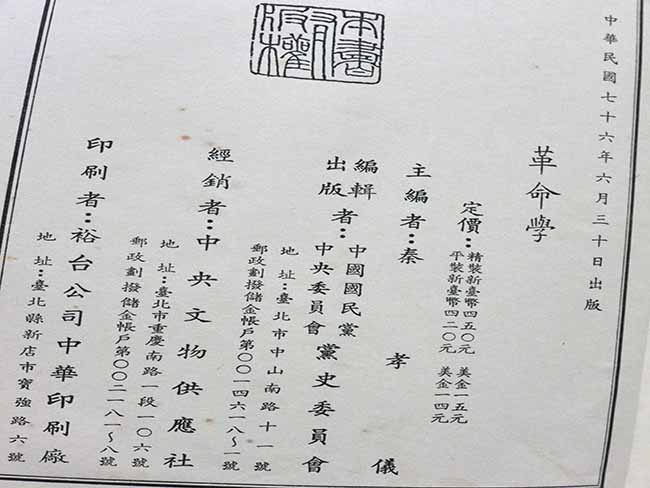 本書有版權
中華民國七十六年六月三十日出版
革命學
定價：精裝新臺幣四五〇元 美金一五元
平裝新臺幣四二〇元 美金一四元
主編者：秦孝儀
編輯出版者：中國國民黨中央委員會黨史委員會
地址：臺北市中山南路十一號
郵政劃撥儲金帳戶第〇〇一四六一八～一號
經銷者：中央文物供應社
地址：臺北市重慶南路一段一〇六號
郵政劃撥儲金帳戶第〇〇二一八一～八號
印刷者：裕台公司中華印刷廠
地址：臺北縣新店市寶強路六號